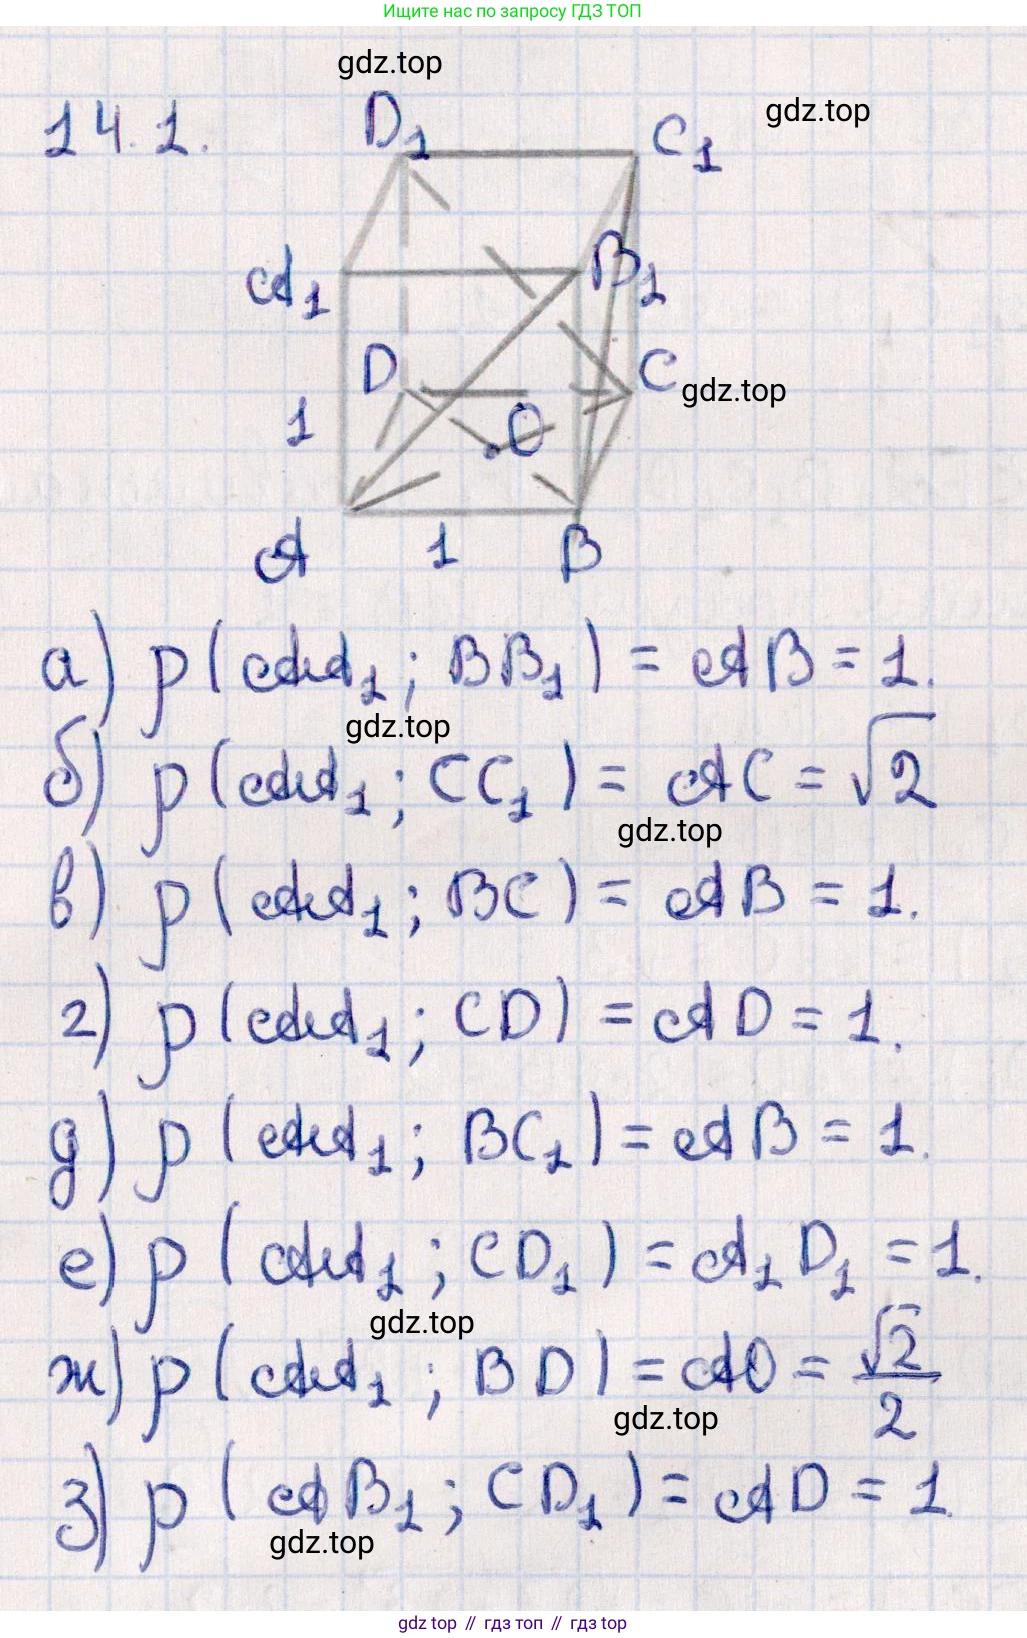 Ищите нас по запросу ГДЗ ТОП
gdz.top
14.1.
D₁
C₁
gdz.top
A₁
B₁
D
C
gdz.top
1
O
A
1
B
а) p(AA₁; BB₁) = AB = 1.
gdz.top
б) p(AA₁; CC₁) = AC = √2
gdz.top
в) p(AA₁; BC) = AB = 1.
г) p(AA₁; CD) = AD = 1.
д) p(AA₁; BC₁) = AB = 1.
е) p(AA₁; CD₁) = A₁D₁ = 1.
gdz.top
ж) p(AA₁; BD) = AO = √2/2
gdz.top
з) p(AB₁; CD₁) = AD = 1.
gdz.top
gdz top // гдз топ // gdz top